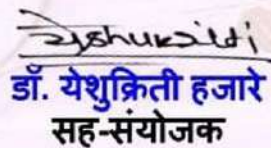 डॉ. येशुक्रिती हजारे
सह-संयोजक